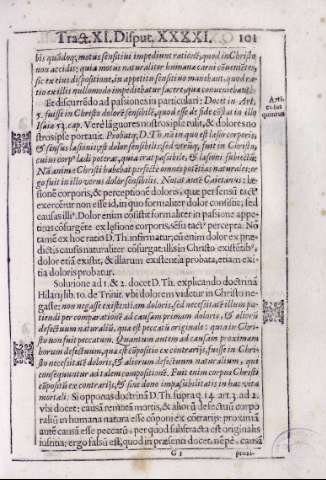 Tract. XI. Disput. XXXXI. 101
bis quādoq; motus sensitius impediunt rationē, quod in Christo
non accidit: quia motus naturaliter humanæ carni cōuenientes,
sic ex eius dispositione, in appetitu sensitiuo manebant, quod ra-
tio ex illis nullo modo impediebatur facere, quæ conueniebant.
Et discurrēdo ad pasiones in particulari: Docet in Art.
5. fuisse in Christo dolorē sensibilē, quod esse de fide cōstat ex illo
Isaiæ 53. cap. Vere lāguores nostros ipse tulit, & dolores no
stros ipse portauit. Probatq; D. Th. nā in quo est læsio corporis,
& sensus læsionis, est dolor sensibilis: sed vtrūq; fuit in Christo,
cuius corpº lædi poterat, quia erat pasibile, & læsioni subiectū:
Nā anima Christi habebat perfecte omnes potētias naturales: er
go fuit in illo verus dolor sensibilis. Notat autē Caietanus: le-
sionē corporis, & perceptionē doloris, quæ per sensū tactº
exercētur non esse id, in quo formaliter dolor consistit, sed
causas illiº. Dolor enim cōsistit formaliter in pasione appe-
titus cōsurgēte ex læsione corporis, sēsu tactº percepta. Nō
tamē ex hoc ratio D. Th. infirmatur, cū enim dolor ex præ-
dictis causis naturaliter cōsurgat, illis in Christo existētibº,
dolor etiā existit, & illarum existentia probata, etiam exi-
stia doloris probatur.
Solutione ad 1. & 2. docet D. Th. explicando doctrinā
Hilarij lib. 10. de Trinit. vbi dolorem videtur in Christo ne-
gasse: non negasse existentiam doloris, sed necesitatē illum pa-
tiendi per comparationē ad causam primam doloris, & aliorū
defectuum naturaliū, quæ est peccatū originale: quia in Chri-
sto non fuit peccatum. Quantum autem ad causam proximam
horum defectuum, quæ est cōpositio ex contrarijs, fuisse in Chri
sto necesitatē doloris, & aliorum defectuum naturalium, qui
consequuntur ad talem compositionē. Fuit enim corpus Christi
cōpositū ex contrarijs, & sine dono impasibilitatis in hac vita
mortali. Si opponas doctrinā D. Th. supra q. 14. art. 3. ad 2.
vbi docet: causā remotā mortis, & aliorū defectuū corpo
raliū in humana natura esse cōpositionē ex contrarijs: proximā
autē causā esse peccatū: per quod subtracta est originalis
iustitia; ergo falsū est, quod in præsenti docet, nēpe, causā
G 5 proxi-